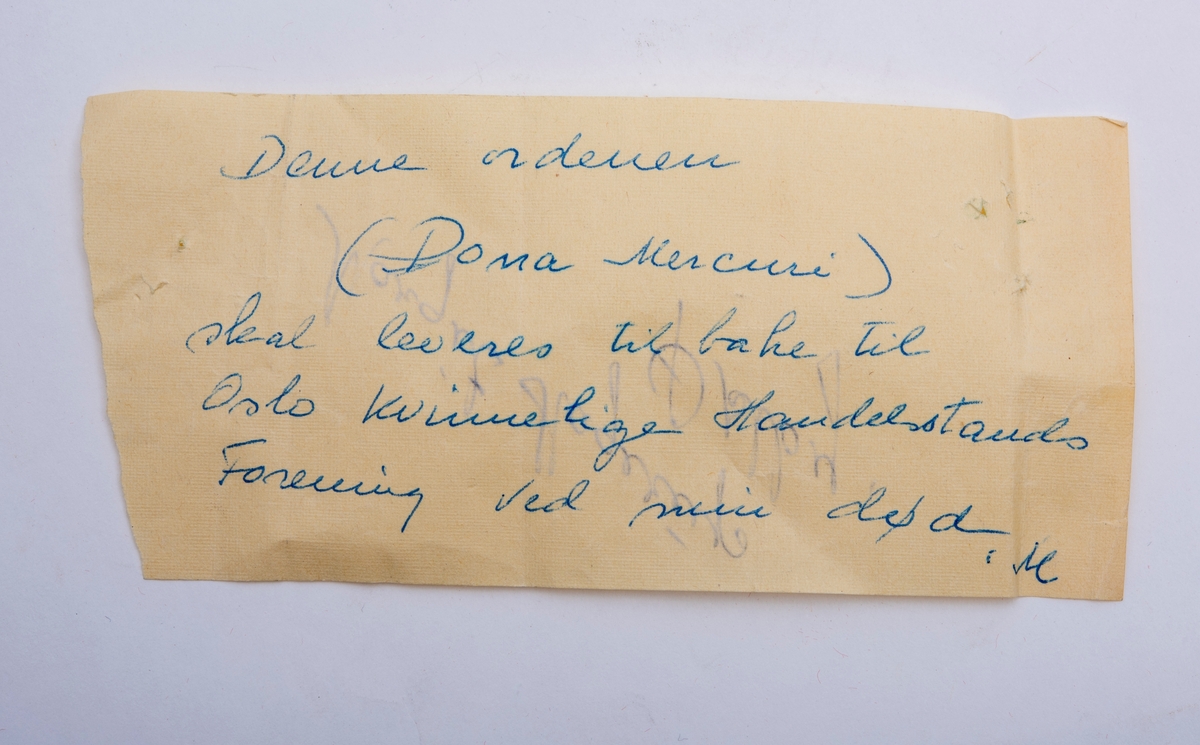 Denne ordenen
(Dona Mercuri)
skal leveres tilbake til
Oslo Kvinnelige Handelsstands
Forening ved min død.
M